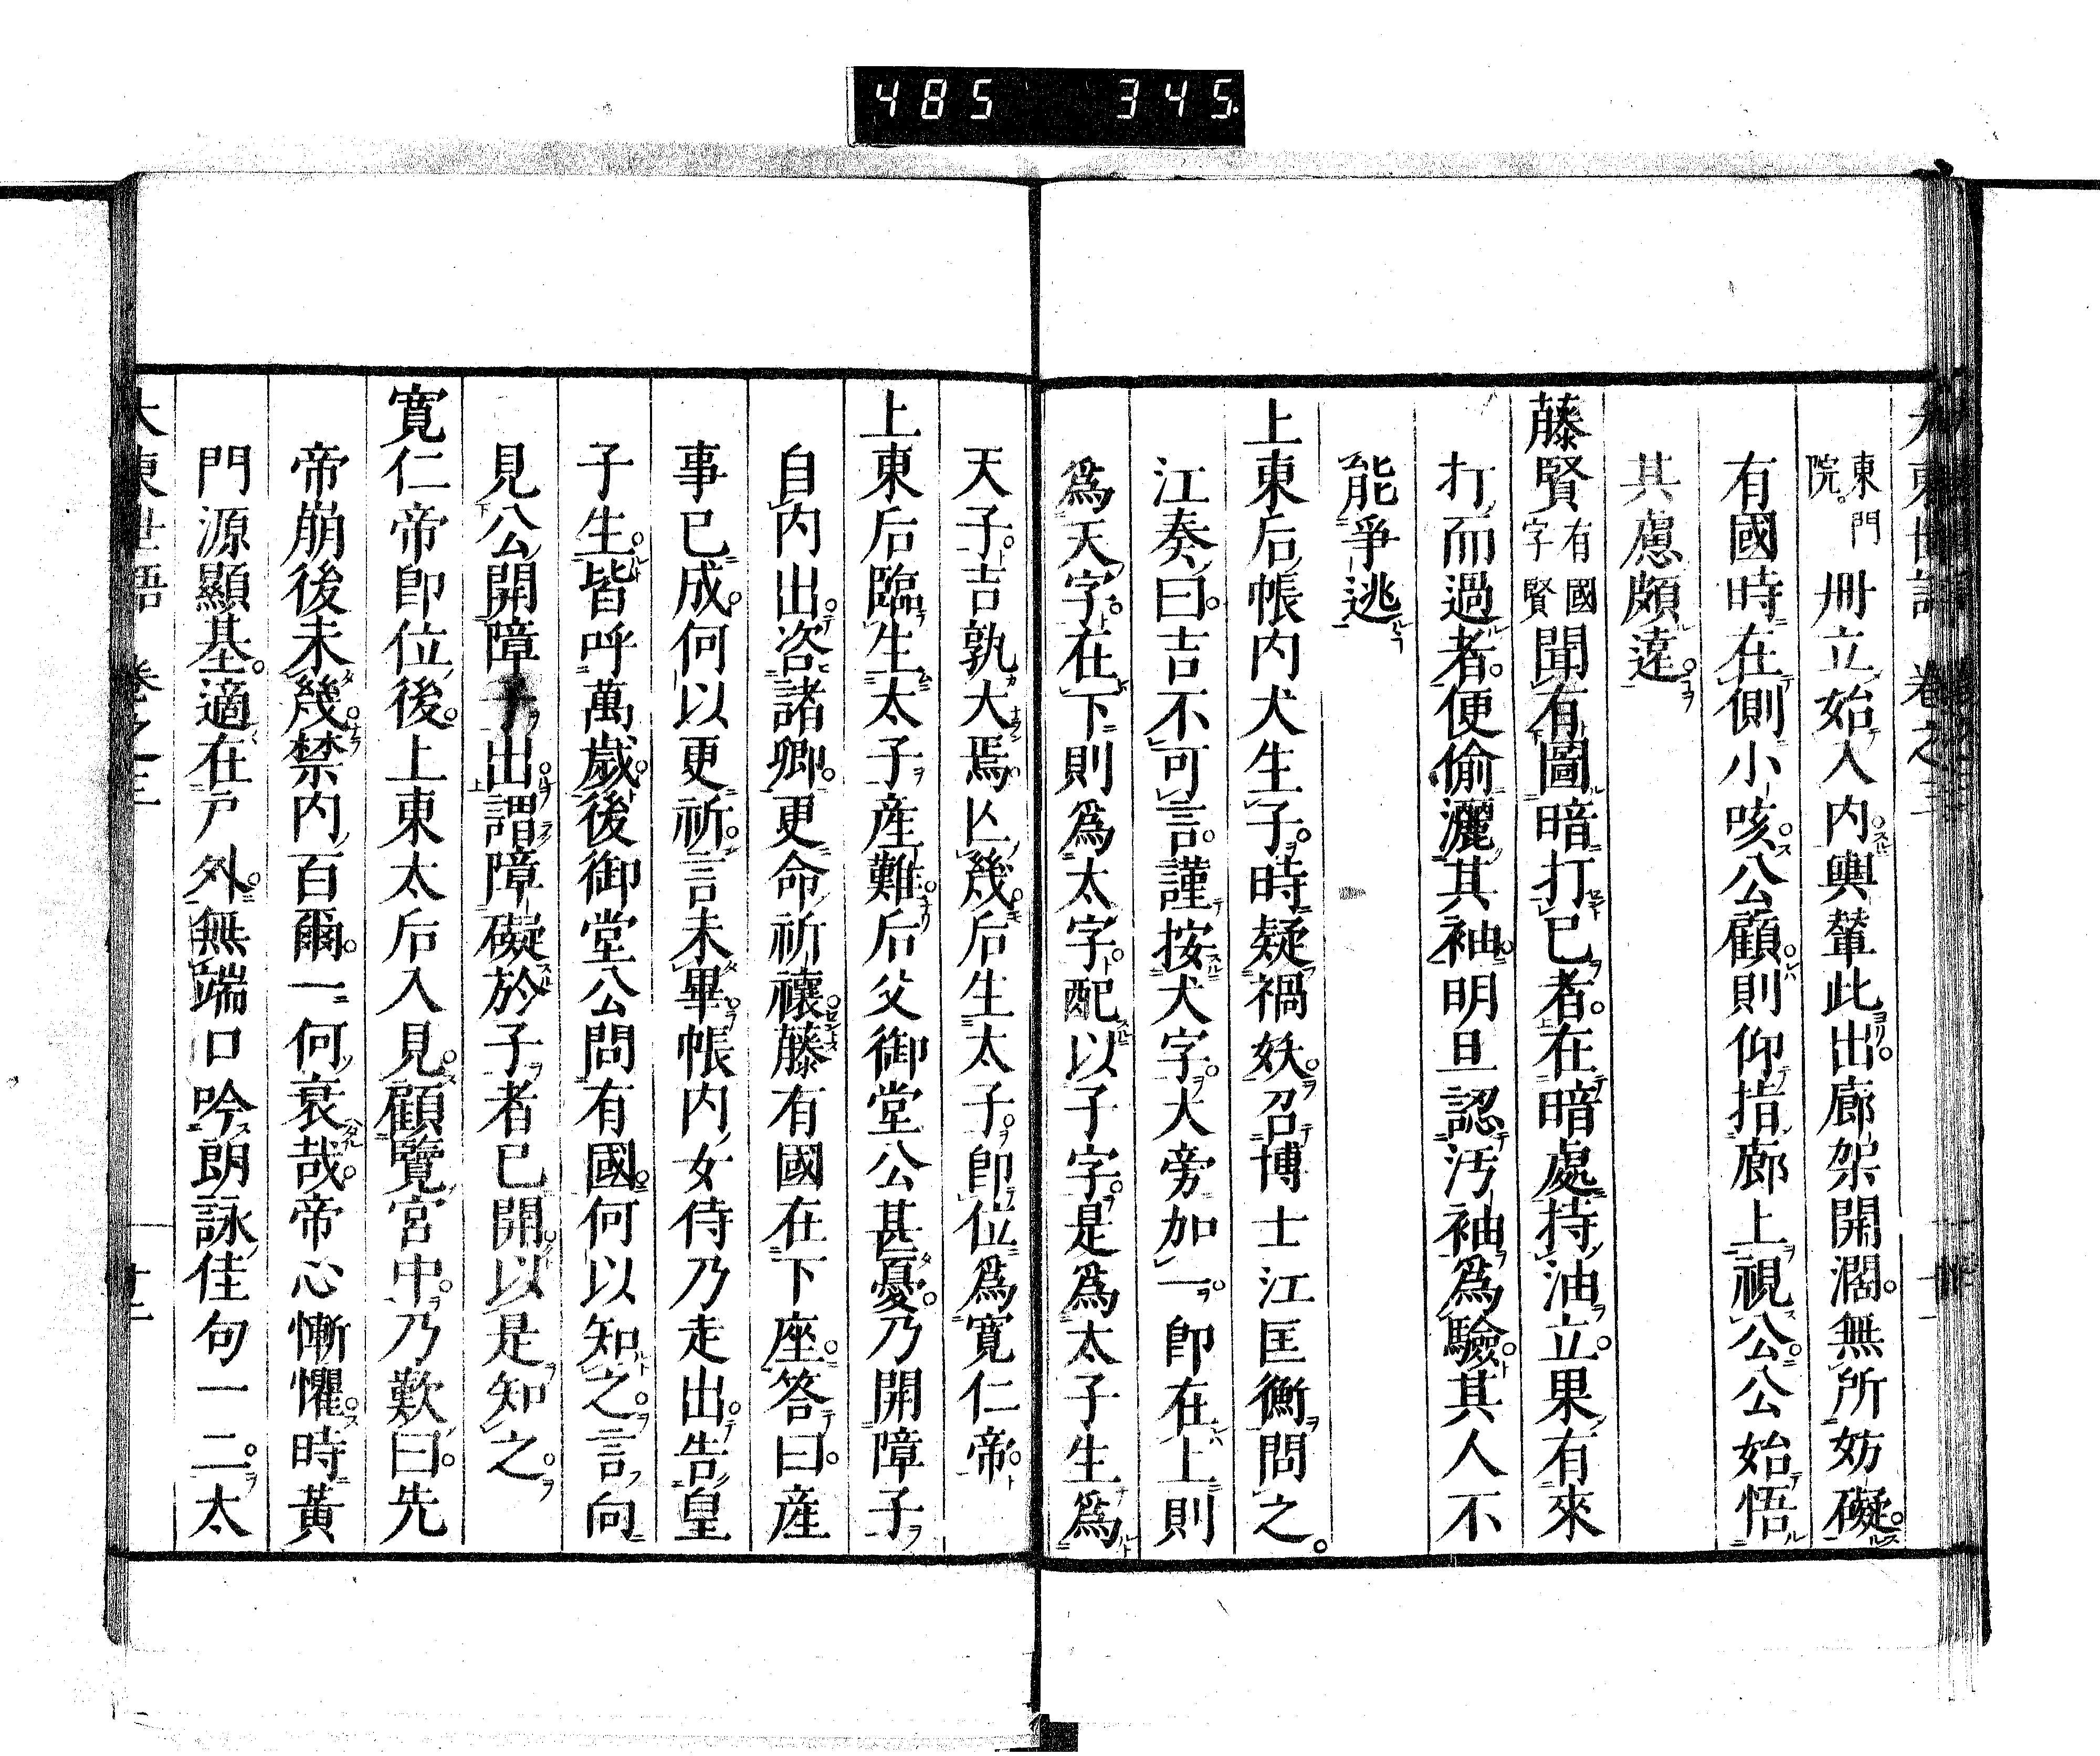 485 345
大東世語 卷之三
東門院 冊立始入内輿輦此出廊架開濶無所妨礙
有國時在側小咳公顧則仰指廊上視公公始悟
其慮頗遠
藤賢有國字賢聞有圖暗打已者在暗處持油立果有來
打而過者便偷灑其袖明旦認汚袖爲驗其人不
能爭逃
上東后帳内犬生子時疑禍妖召博士江匡衡問之
江奏曰吉不可言謹按犬字大旁加一即在上則
爲天字在下則爲太字配以子字是爲太子生爲
天子吉孰大焉亾幾后生太子即位爲寬仁帝
上東后臨生太子產難后父御堂公甚憂乃開障子
自内出咨諸卿更命祈禳藤有國在下座答曰產
事已成何以更祈言未畢帳内女侍乃走出告皇
子生皆呼萬歲後御堂公問有國何以知之言向
見公開障子出謂障礙於子者已開以是知之
寬仁帝即位後上東太后入見顧覽宮中乃歎曰先
帝崩後未幾禁内百爾一何衰哉帝心慚懼時黃
門源顯基適在戸外無端口吟朗詠佳句一二太
大東世語 卷之三 十二